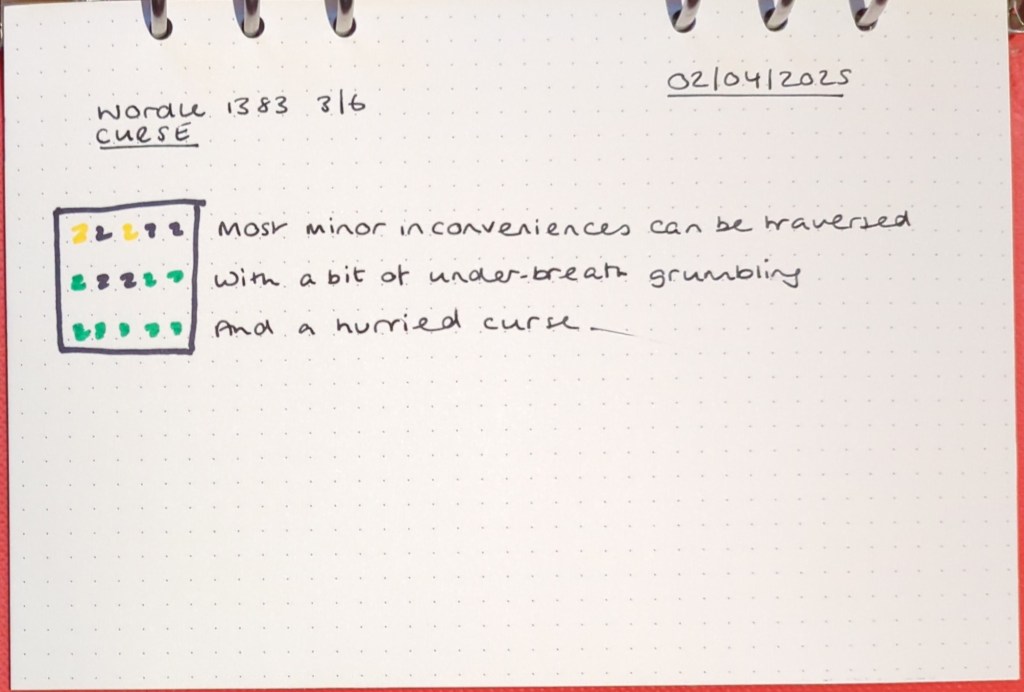 02/04/2025
Wordle 1383 3/6
CURSE
Most minor inconveniences can be traversed
With a bit of under-breath grumbling
And a hurried curse.